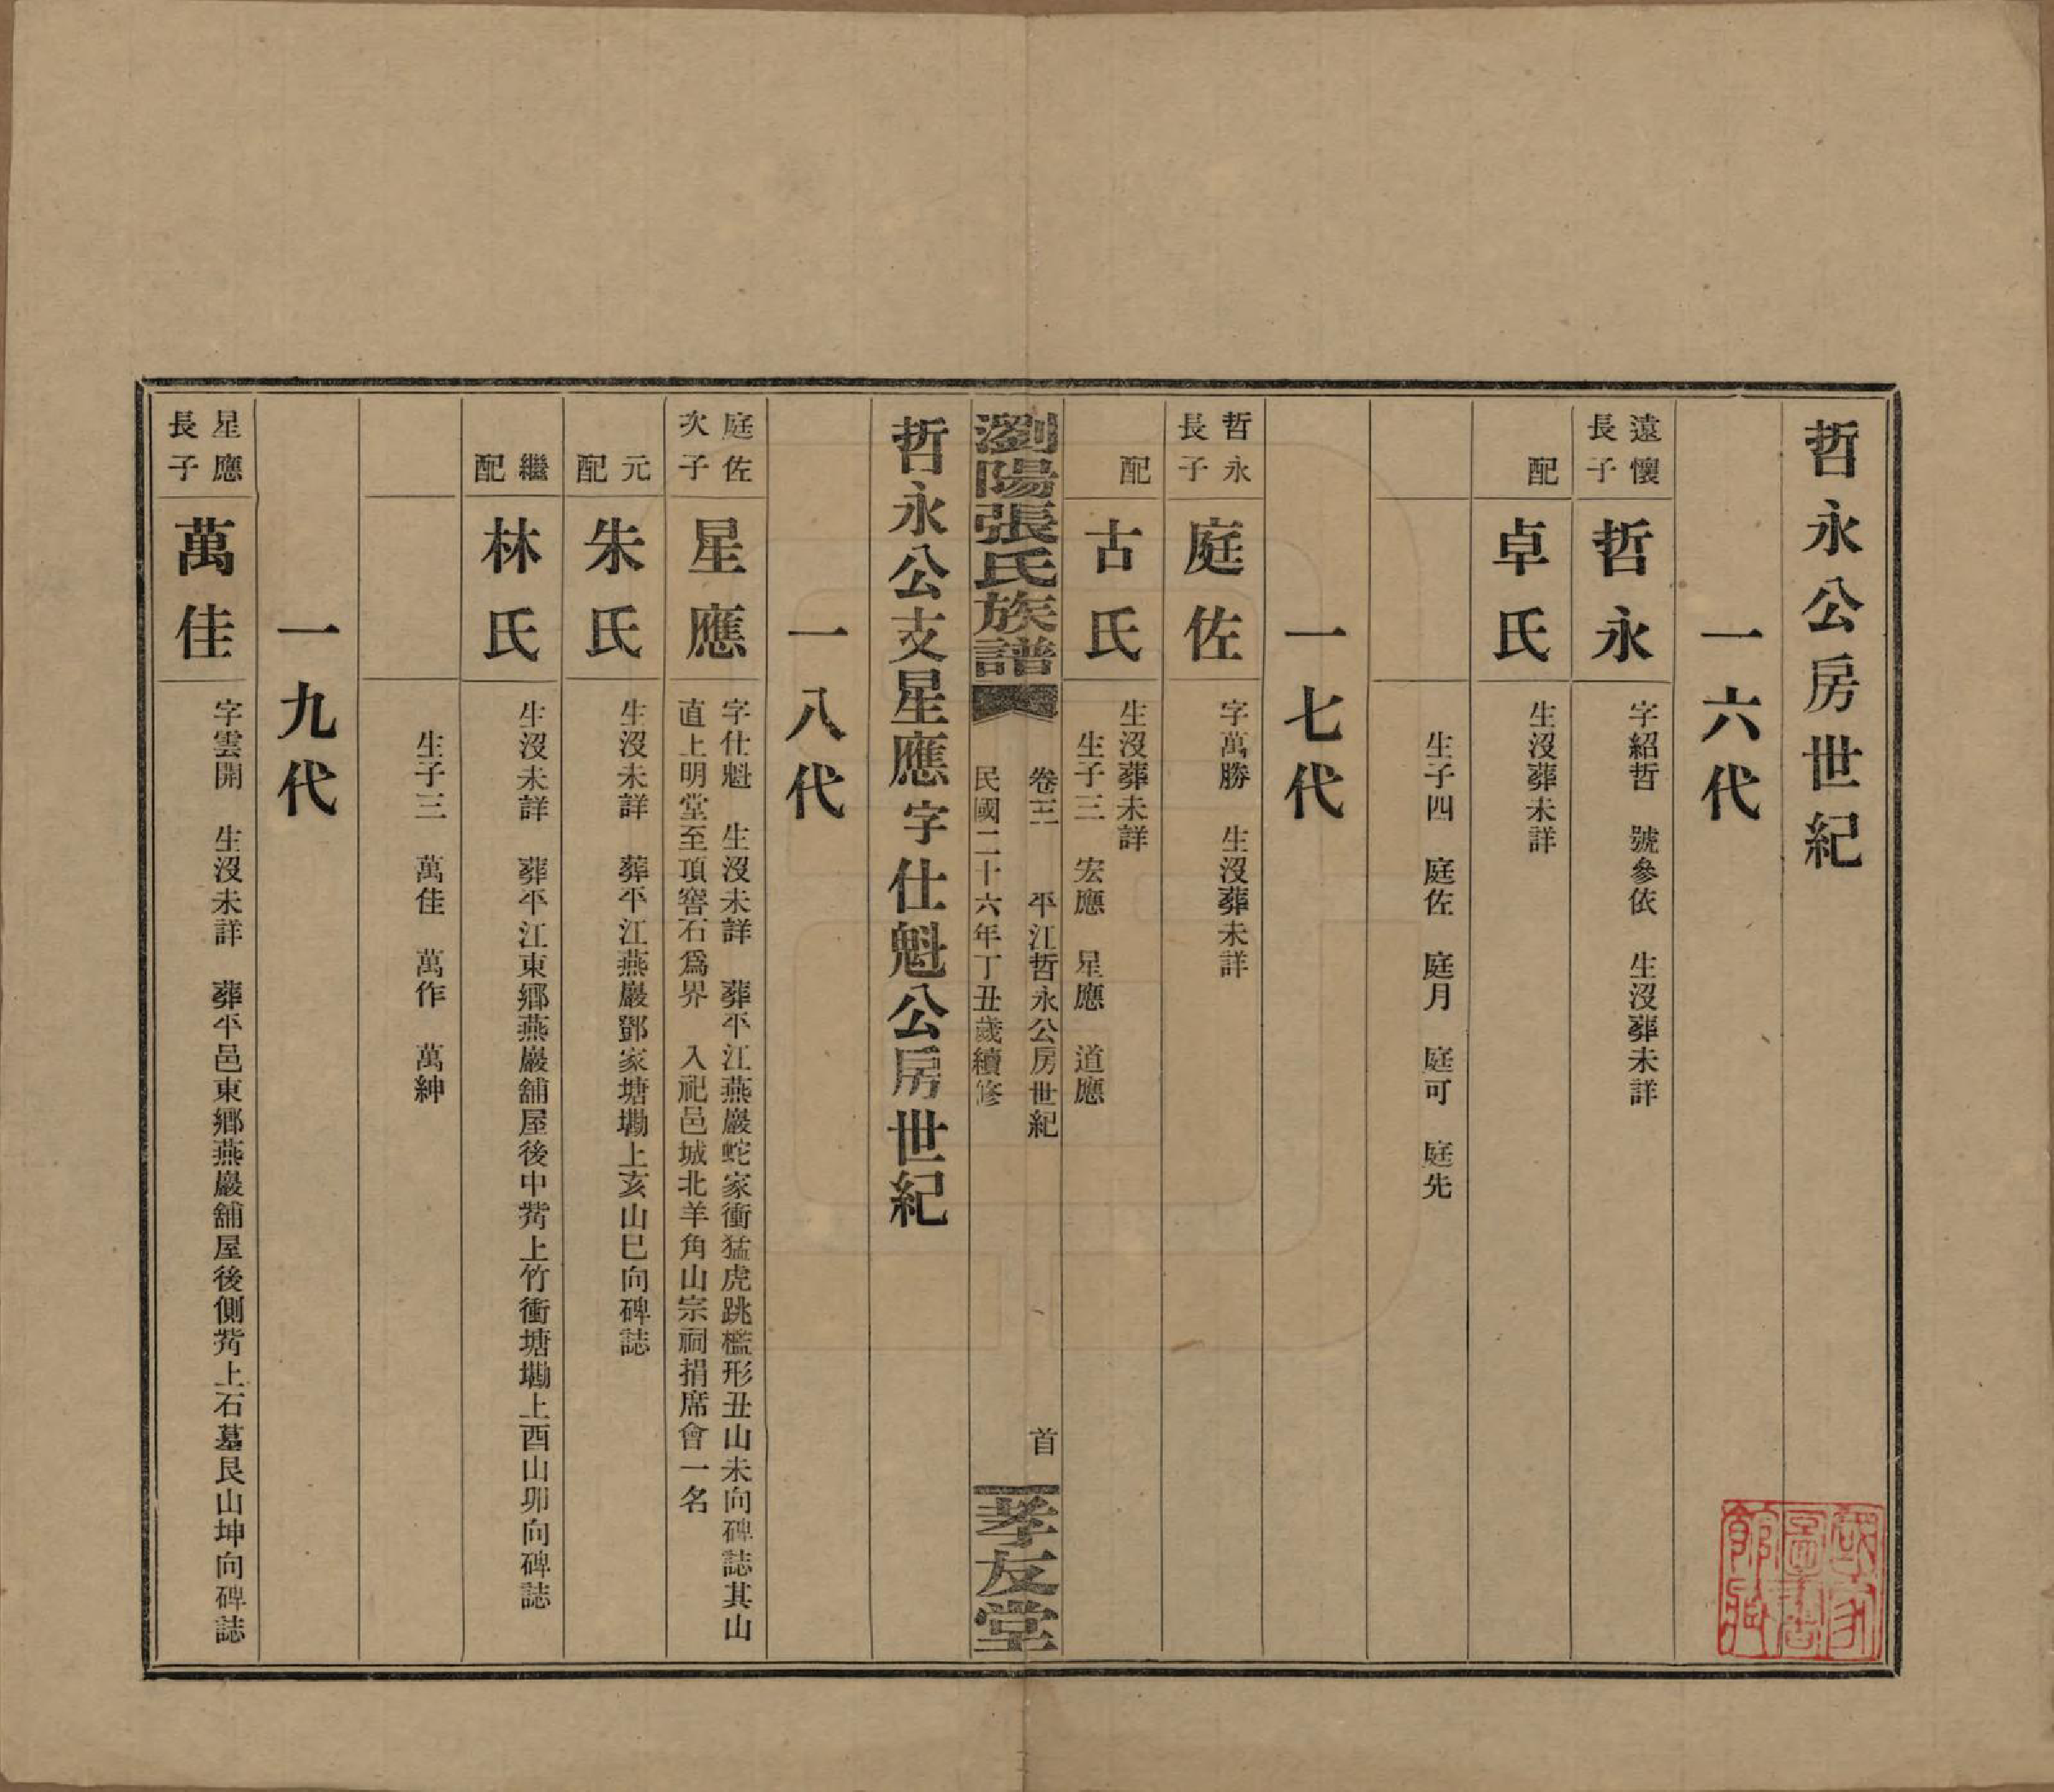 哲永公房世紀
一六代
遠懷長子
哲永
字紹哲　號參依　生沒葬未詳
配
卓氏
生沒葬未詳
生子四　庭佐　庭月　庭可　庭先
一七代
哲永長子
庭佐
字萬勝　生沒葬未詳
配
古氏
生沒葬未詳
生子三　宏應　星應　道應
瀏陽張氏族譜
卷三　平江哲永公房世紀　首
民國二十六年丁丑歲續修
孝友堂
哲永公支星應字仕魁公房世紀
一八代
庭佐次子
星應
字仕魁　生沒未詳　葬平江燕巖蛇家衝猛虎跳檻形丑山未向碑誌其山
直上明堂至項窖石爲界　入祀邑城北羊角山宗祠捐席會一名
元配
朱氏
生沒未詳　葬平江燕巖鄧家塘墈上亥山巳向碑誌
繼配
林氏
生沒未詳　葬平江東鄉燕巖舖屋後中嵴上竹衝塘墈上酉山卯向碑誌
生子三　萬佳　萬作　萬紳
一九代
星應長子
萬佳
字雲開　生沒未詳　葬平邑東鄉燕巖舖屋後側嵴上石墓艮山坤向碑誌
國家圖書館藏